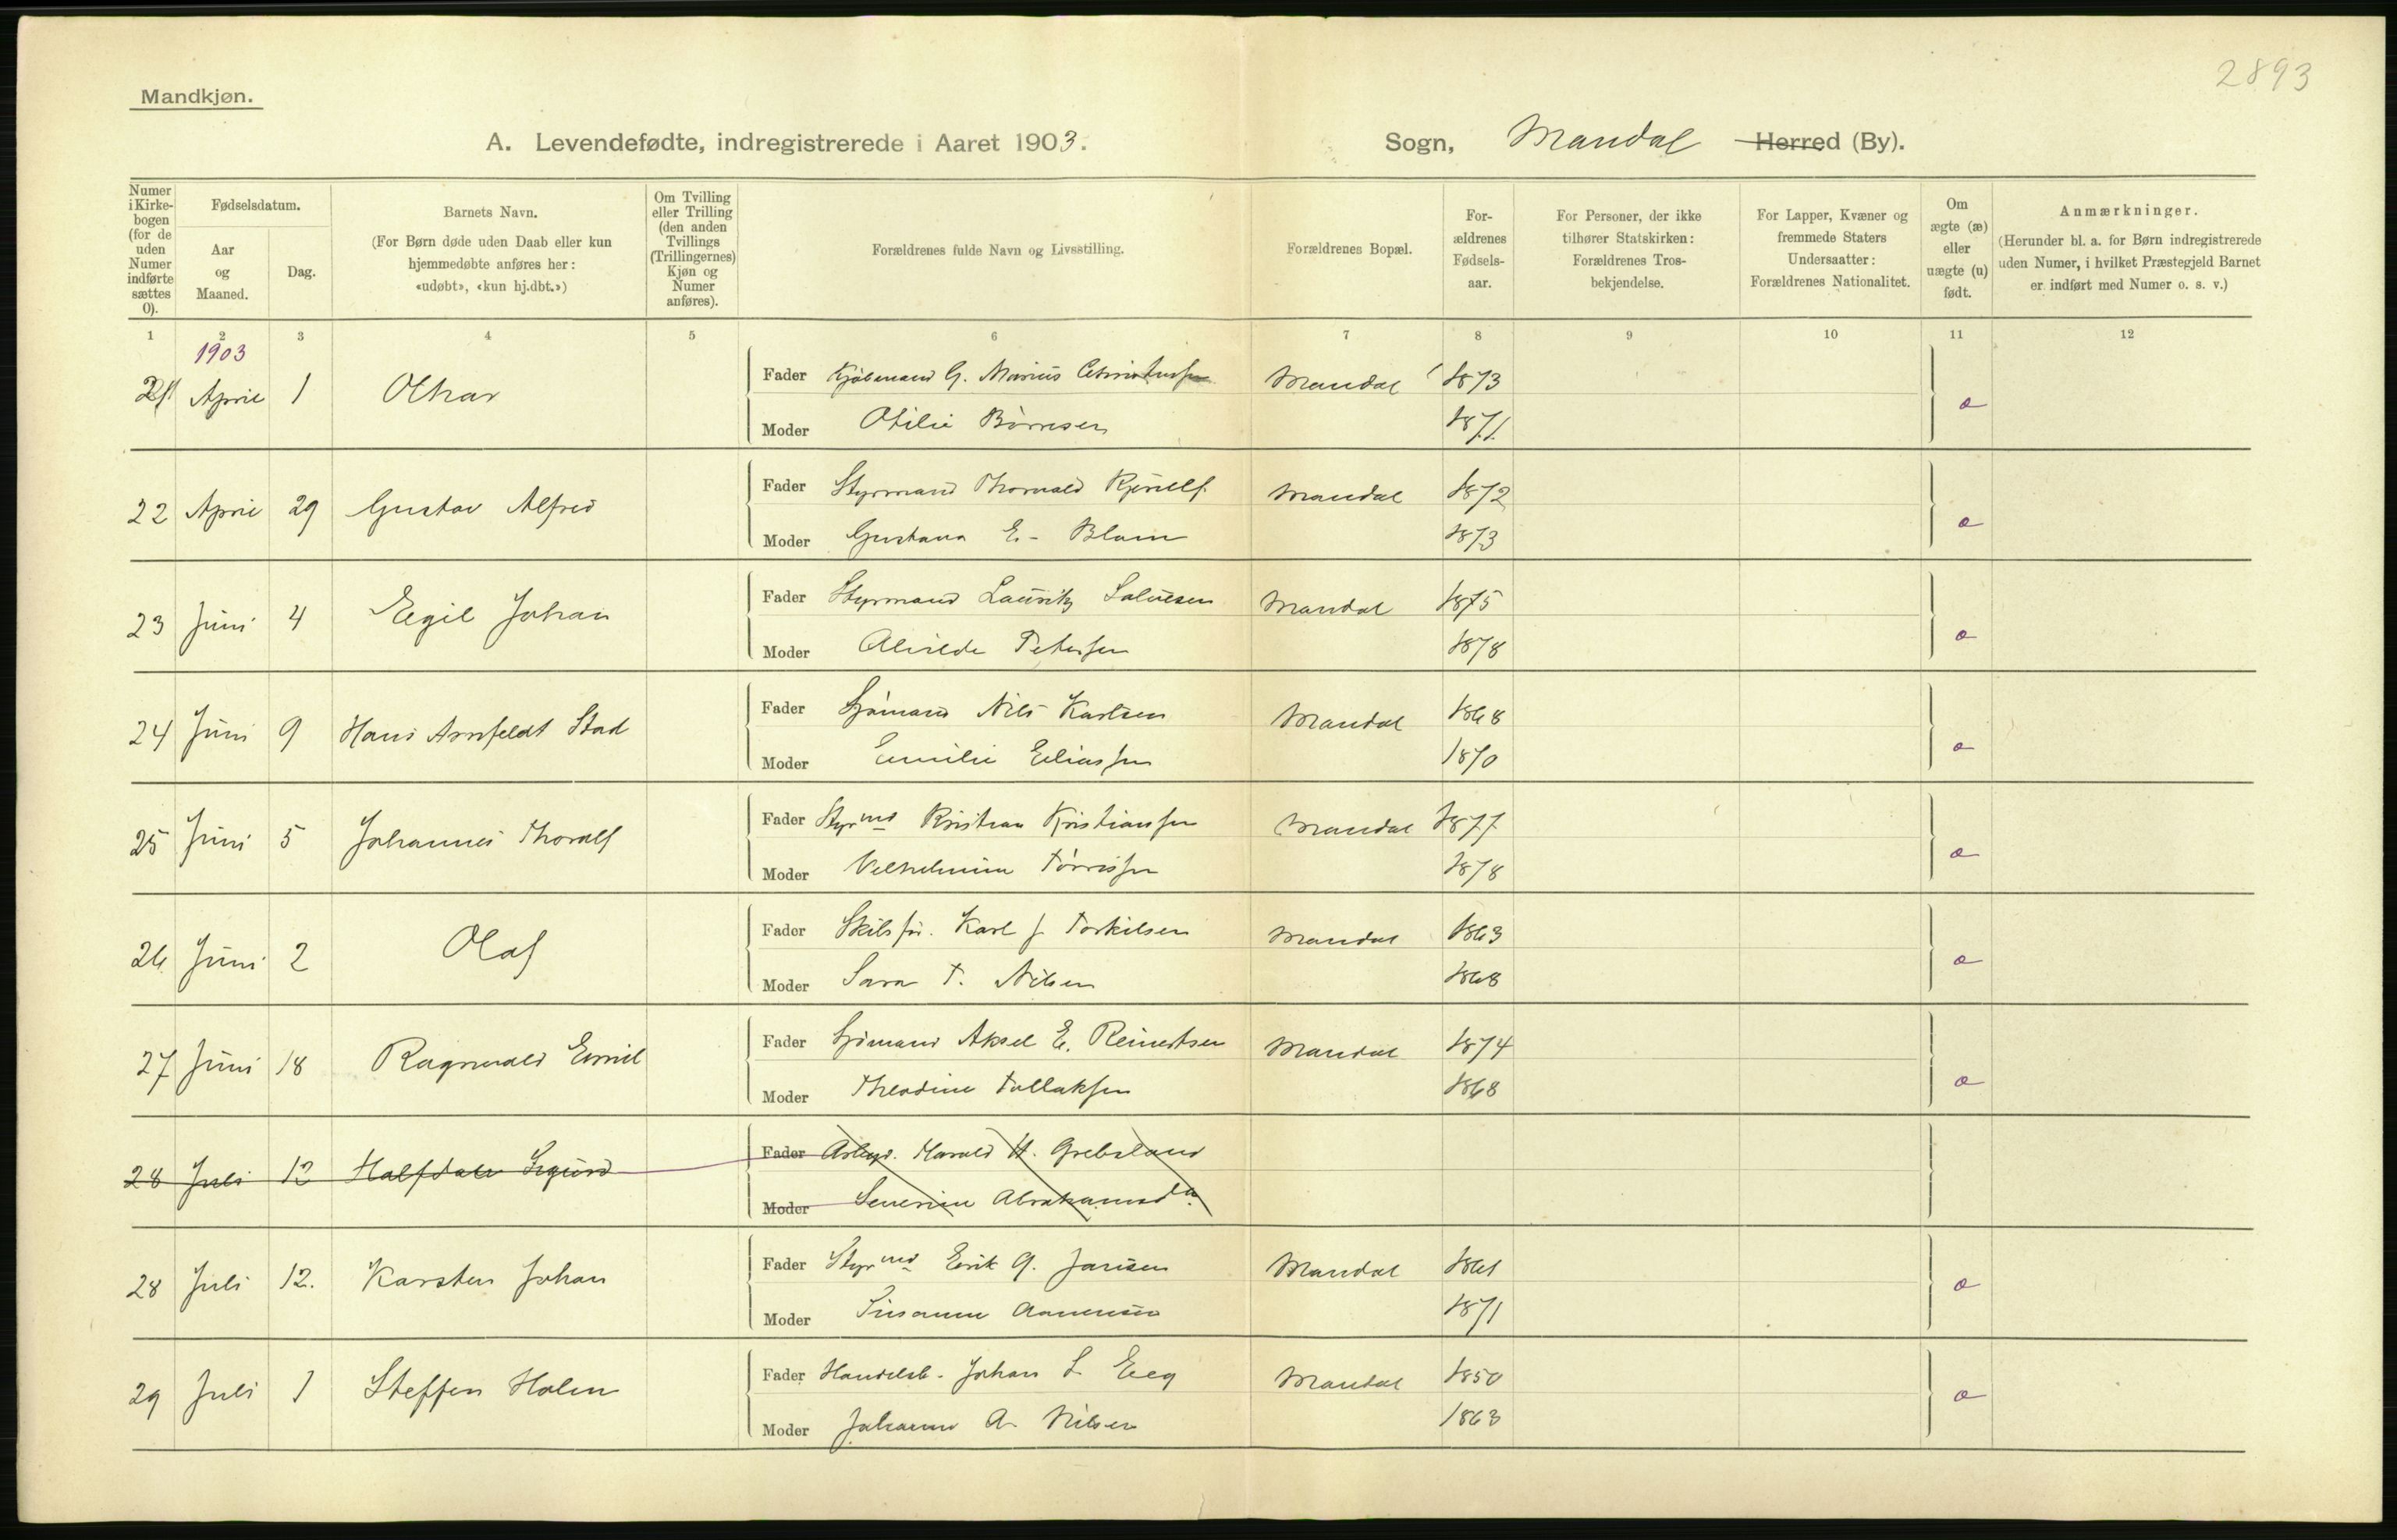 2893
Mandkjøn.
A. Levendefødte, indregistrerede i Aaret 1903. Sogn, Mandal Herred (By).
Numer i Kirkebogen (for de uden Numer indførte sættes 0).
Fødselsdatum.
Aar og Maaned.
Dag.
Barnets Navn.
(For Børn døde uden Daab eller kun hjemmedøbte anføres her: «udøbt», «kun hj.dbt.»)
Om Tvilling eller Trilling (den anden Tvillings (Trillingernes) Kjøn og Numer anføres).
Forældrenes fulde Navn og Livsstilling.
Forældrenes Bopæl.
Forældrenes Fødselsaar.
For Personer, der ikke tilhører Statskirken: Forældrenes Trosbekjendelse.
For Lapper, Kvæner og fremmede Staters Undersaatter: Forældrenes Nationalitet.
Om ægte (æ) eller uægte (u) født.
Anmærkninger.
(Herunder bl. a. for Børn indregistrerede uden Numer, i hvilket Præstegjeld Barnet er indført med Numer o. s. v.)
1 2 3 4 5 6 7 8 9 10 11 12
1903
21 April 1 Othar Fader Kjøbmand G. Marius Mandal 1873
Moder Otilie Børresen 1871
22 April 29 Gustav Alfred Fader Styrmand Thorvald Mandal 1872
Moder Gustava E. Blom 1873
23 Juni 4 Egil Johan Fader Styrmand Lauritz Salvesen Mandal 1875
Moder Alvilde Petersen 1878
24 Juni 9 Hans Arnfeldt Stad Fader Sjømand Nils Karlsen Mandal 1868
Moder Emilie Eliassen 1870
25 Juni 5 Johannes Thoralf Fader Styrmd Kristian Kristiansen Mandal 1877
Moder Vilhelmine Tørrissen 1878
26 Juni 2 Olaf Fader Skibsfø. Karl J. Torkilsen Mandal 1863
Moder Sara T. Nilsen 1868
27 Juni 18 Ragnvald Emil Fader Sjømand Aksel E. Reinertsen Mandal 1874
Moder Theodine Tallaksen 1868
28 Juli 12 Halfdan Sigurd Fader Harald H. Grebsland
Moder Severine Abrahamsd.
28 Juli 12. Karsten Johan Fader Styrmd Erik G. Jansen Mandal 1861
Moder Susanne Aanensen 1871
29 Juli 1 Steffen Holm Fader Handelsb. Johan L. Eeg Mandal 1850
Moder Johanne A. Nilsen 1863